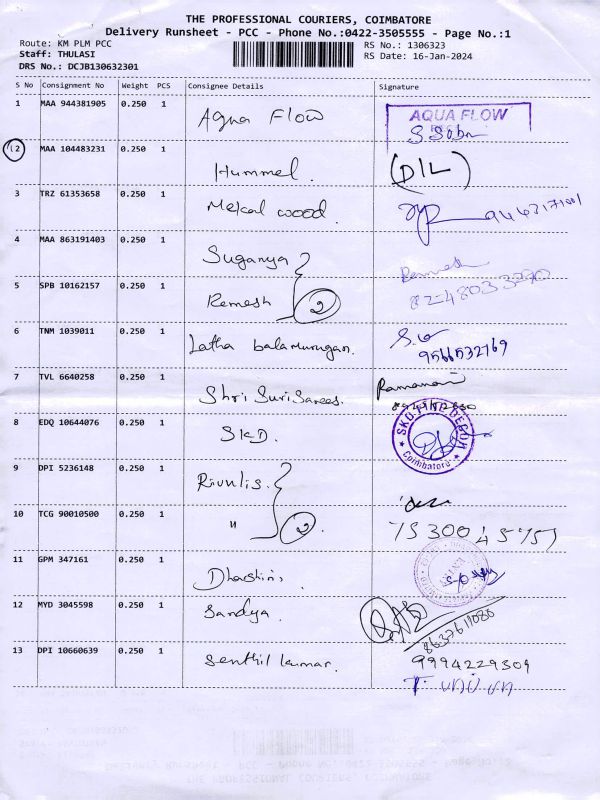 THE PROFESSIONAL COURIERS, COIMBATORE
Delivery Runsheet - PCC - Phone No.:0422-3505555 - Page No.:1
Route: KM PLM PCC
RS No.: 1306323
Staff: THULASI
RS Date: 16-Jan-2024
DRS No.: DCJB130632301
S No Consignment No Weight PCS Consignee Details Signature
1 MAA 944381905 0.250 1 Aqua Flow AQUA FLOW
12 MAA 104483231 0.250 1 Hummel. (DIL)
3 TRZ 61353658 0.250 1 Metcal wood.
4 MAA 863191403 0.250 1 Suganya Ramesh
5 SPB 10162157 0.250 1 Remesh 2
6 TNM 1039011 0.250 1 Latha balamurugan. 9566532769
7 TVL 6640258 0.250 1 Shri Suri Sarees. Ramanan
8 EDQ 10644076 0.250 1 SKD. Coimbatore
9 DPI 5236148 0.250 1 Rivulis.
10 TCG 90010500 0.250 1 " 2.
11 GPM 347161 0.250 1 Dharshini
12 MYD 3045598 0.250 1 Sandya. 8637611080
13 DPI 10660639 0.250 1 Senthil kumar. 9994229309